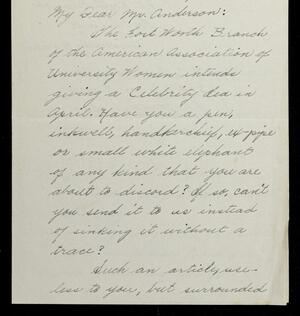 My Dear Mr. Anderson:
The Fort Worth Branch
of the American Association of
University Women intends
giving a Celebrity Tea in
April. Have you a pen,
inkwell, handkerchief, ex-pipe
or small white elephant
of any kind that you are
about to discord? If so, can't
you send it to us instead
of sinking it without a
trace?
Such an article, use-
less to you, but surrounded